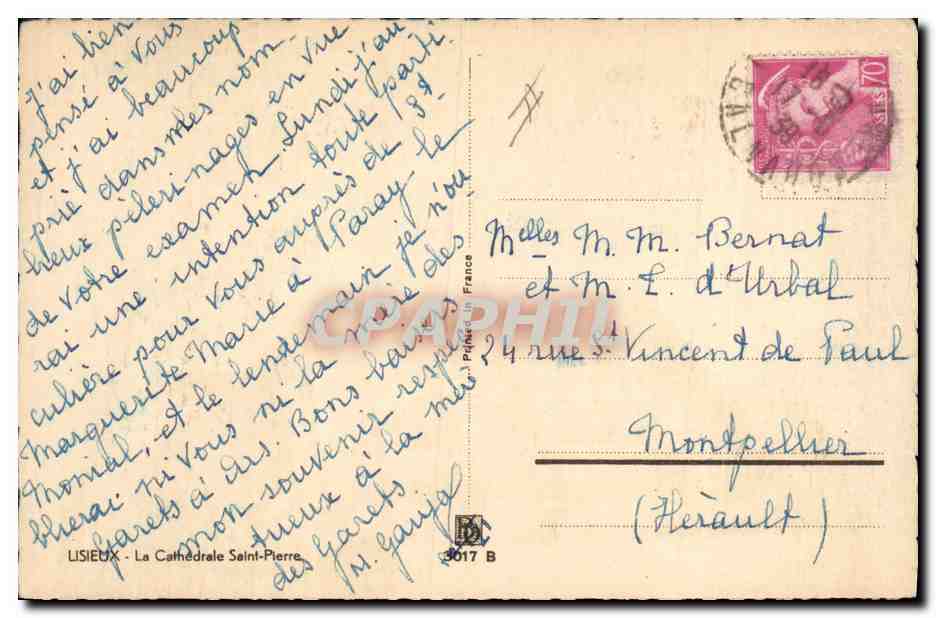 J'ai bien
pensé à vous
et j'ai beaucoup
prié dans mes nom-
breux pèlerinages en vue
de votre examen. Lundi j'au
rai une intention toute parti-
culière pour vous auprès de Ste
Marguerite Marie à Paray le
Monial, et le lendemain je n'ou
blierai ni vous ni la mère des
Garets à Ars. Bons baisers
mon souvenir respec
tueux à la mère
des Garets
M. Gauja
LISIEUX - La Cathédrale Saint-Pierre
3017 B
Printed in France
CPAPHIL
70
Melles M. M. Bernat
et M. E. d'Urbal
24 rue St Vincent de Paul
Montpellier
(Hérault)